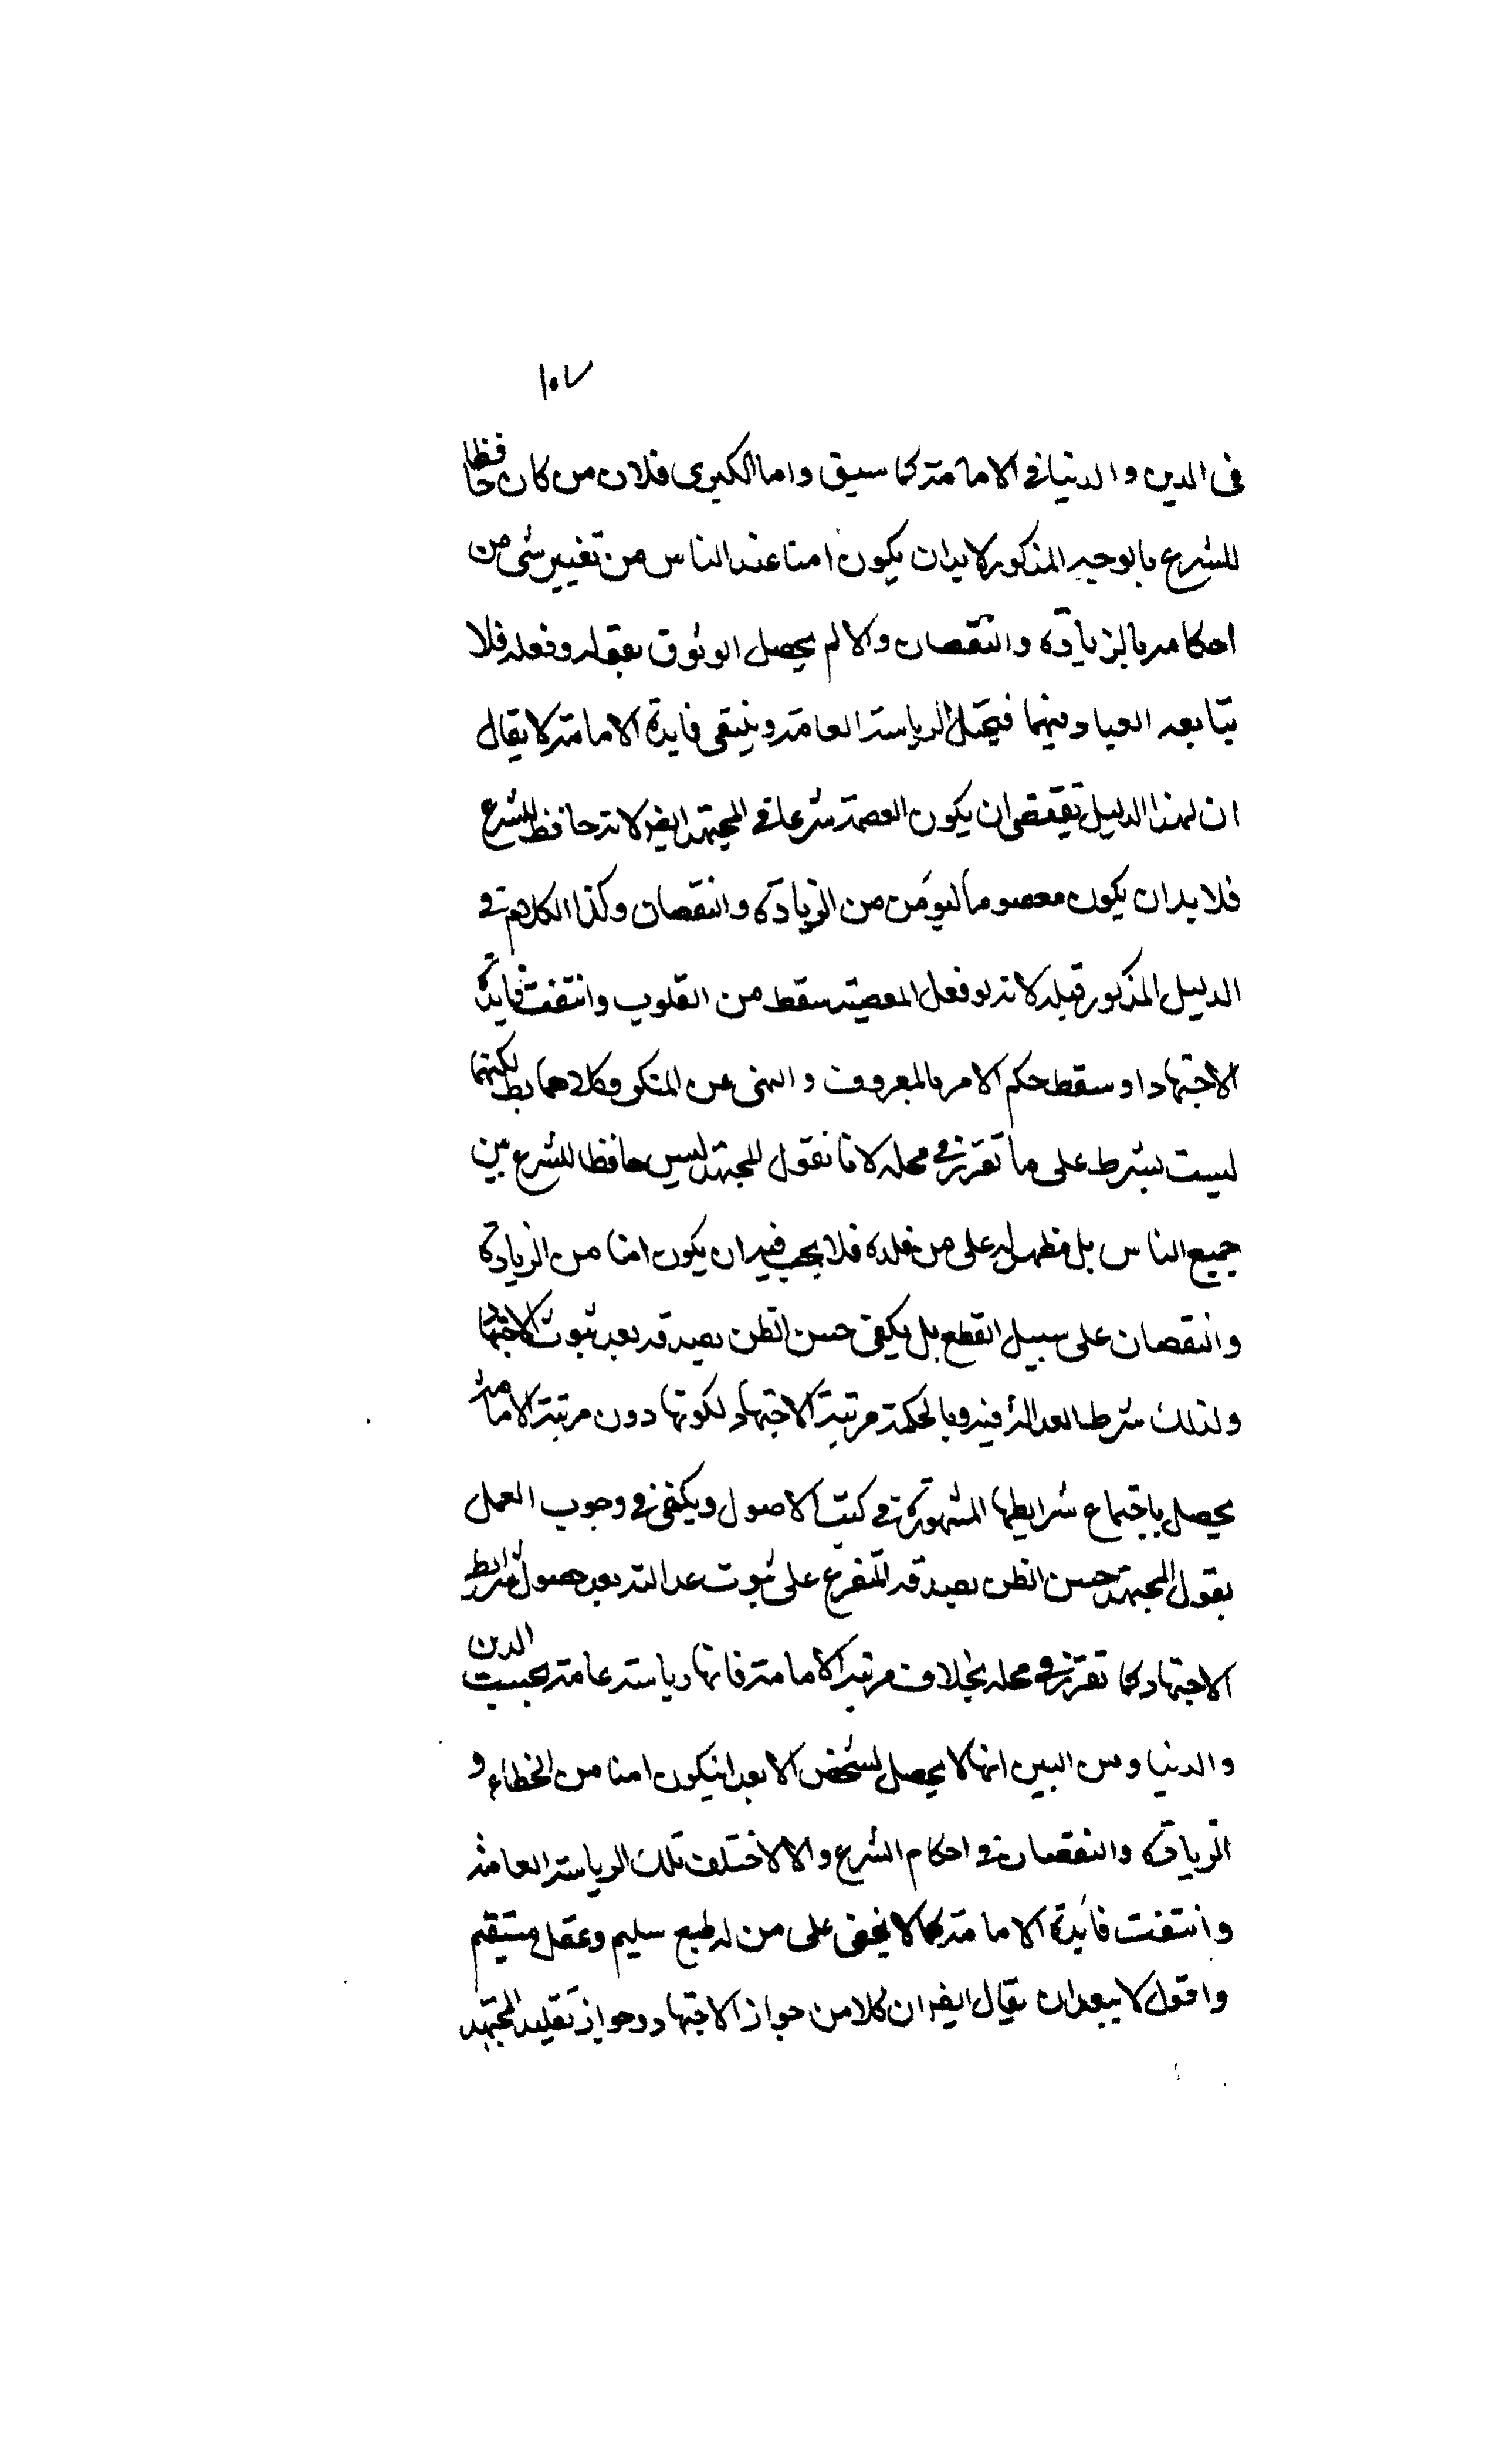 ١٠٧
فى الدين والدنيا فى الامامة كما سبق واما الكبرى فلان من كان حافظا
للشرع بالوجه المذكور لابد ان يكون امنا عند الناس من تغيير شى من
احكامه بالزيادة والنقصان والا لم يحصل الوثوق بقوله وفعله فلا
يتابعه العباد فيهما فيختل الرياسة العامة وينتفى فايدة الامامة لا يقال
ان هذا الدليل يقتضى ان يكون العصمة شرطا فى المجتهد ايضا لانه حافظ للشرع
فلابد ان يكون معصوما ليؤمن من الزيادة والنقصان وكذا الكلام فى
الدليل المذكور قبله لانه لو فعل المعصية سقط من القلوب وانتفت فايدة
الاجتهاد او سقط حكم الامر بالمعروف والنهى عن المنكر وكلاهما بط لكنها
ليست بشرط على ما تقرر فى محله لانا نقول المجتهد ليس حافظا للشرع بين
جميع الناس بل مظهر له على من قلده فلا يجب فيه ان يكون امنا من الزيادة
والنقصان على سبيل القطع بل يكفى حسن الظن بصدقه بعد ثبوت الاجتهاد
ولذلك شرط العدالة فيه وبالحكمة مرتبة الاجتهاد لكونها دون مرتبة الامامة
يحصل باجتماع شرايطها المشهورة فى كتب الاصول ويكفى فى وجوب العمل
بقول المجتهد حسن الظن بصدقه المتفرع على ثبوت عدالته بعد حصول شرايط
الاجتهاد كما تقرر فى محله بخلاف مرتبة الامامة فانها رياسة عامة بحسب الدين
والدنيا ومن البين انها لا يحصل لشخص الا بعد ان يكون امنا من الخطاء و
الزيادة والنقصان فى احكام الشرع والا لاختلف تلك الرياسة العامة
وانتفت فائدة الامامة كما لا يخفى على من له طبع سليم وعقل مستقيم
واقول لا يبعد ان يقال ايضا ان كلا من جواز الاجتهاد وجواز تقليد المجتهد